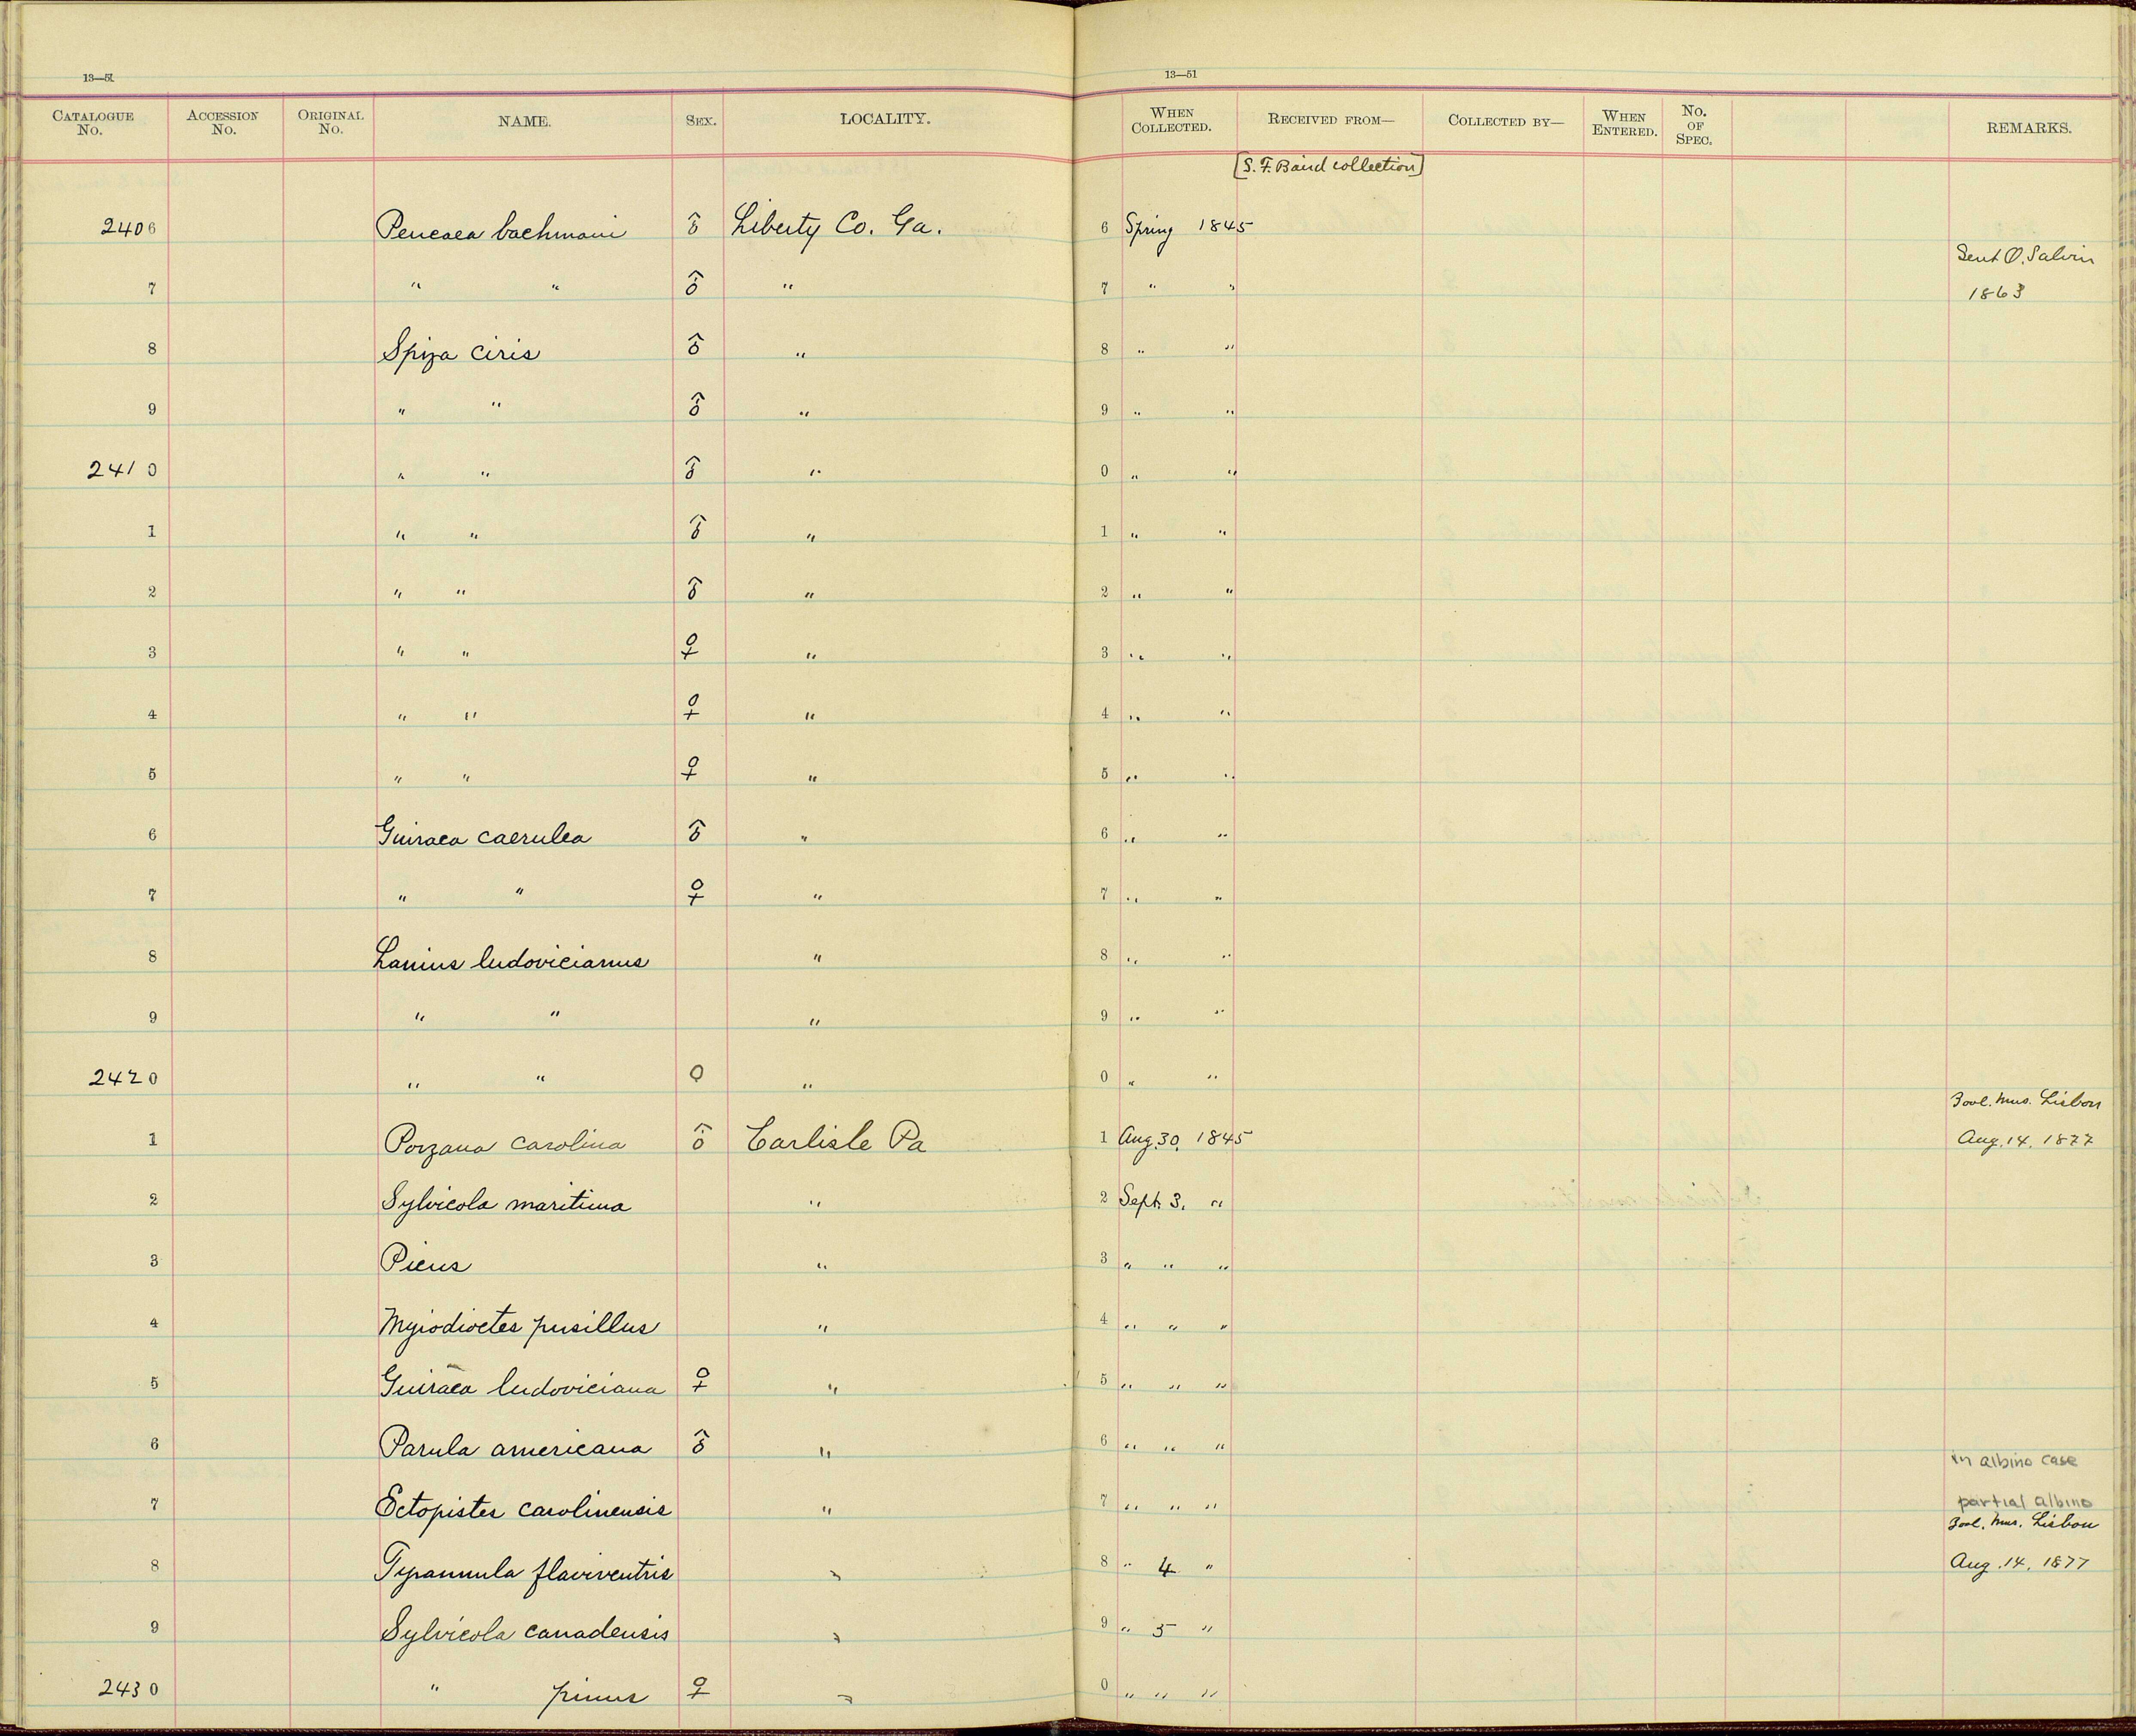 13—51 13—51
CATALOGUE No. ACCESSION No. ORIGINAL No. NAME. SEX. LOCALITY. WHEN COLLECTED. RECEIVED FROM— COLLECTED BY— WHEN ENTERED. No. OF SPEC. REMARKS.
[S. F. Baird collection]
2406 Peucaea bachmani ♂ Liberty Co. Ga. 6 Spring 1845
Sent O. Salvin
7 " " ♂ " 7 " " 1863
8 Spiza ciris ♂ " 8 " "
9 " " ♂ " 9 " "
2410 " " ♂ " 0 " "
1 " " ♂ " 1 " "
2 " " ♂ " 2 " "
3 " " ♀ " 3 " "
4 " " ♀ " 4 " "
5 " " ♀ " 5 " "
6 Guiraea caerulea ♂ " 6 " "
7 " " ♀ " 7 " "
8 Lanius ludovicianus " 8 " "
9 " " " 9 " "
2420 " " O " 0 " "
Zool. Mus. Lisbon
1 Porzana carolina ♂ Carlisle Pa 1 Aug. 30, 1845 Aug. 14, 1877
2 Sylvicola maritima " 2 Sept. 3. "
3 Picus " 3 " " "
4 Myiodioctes pusillus " 4 " " "
5 Guiraea ludoviciana ♀ " 5 " " "
6 Parula americana ♂ " 6 " " "
in albino case
7 Ectopistes carolinensis " 7 " " " partial albino
Zool. Mus. Lisbon
8 Tyrannula flaviventris " 8 " 4 " Aug. 14, 1877
9 Sylvicola canadensis " 9 " 5 "
2430 " pinus ♀ " 0 " " "